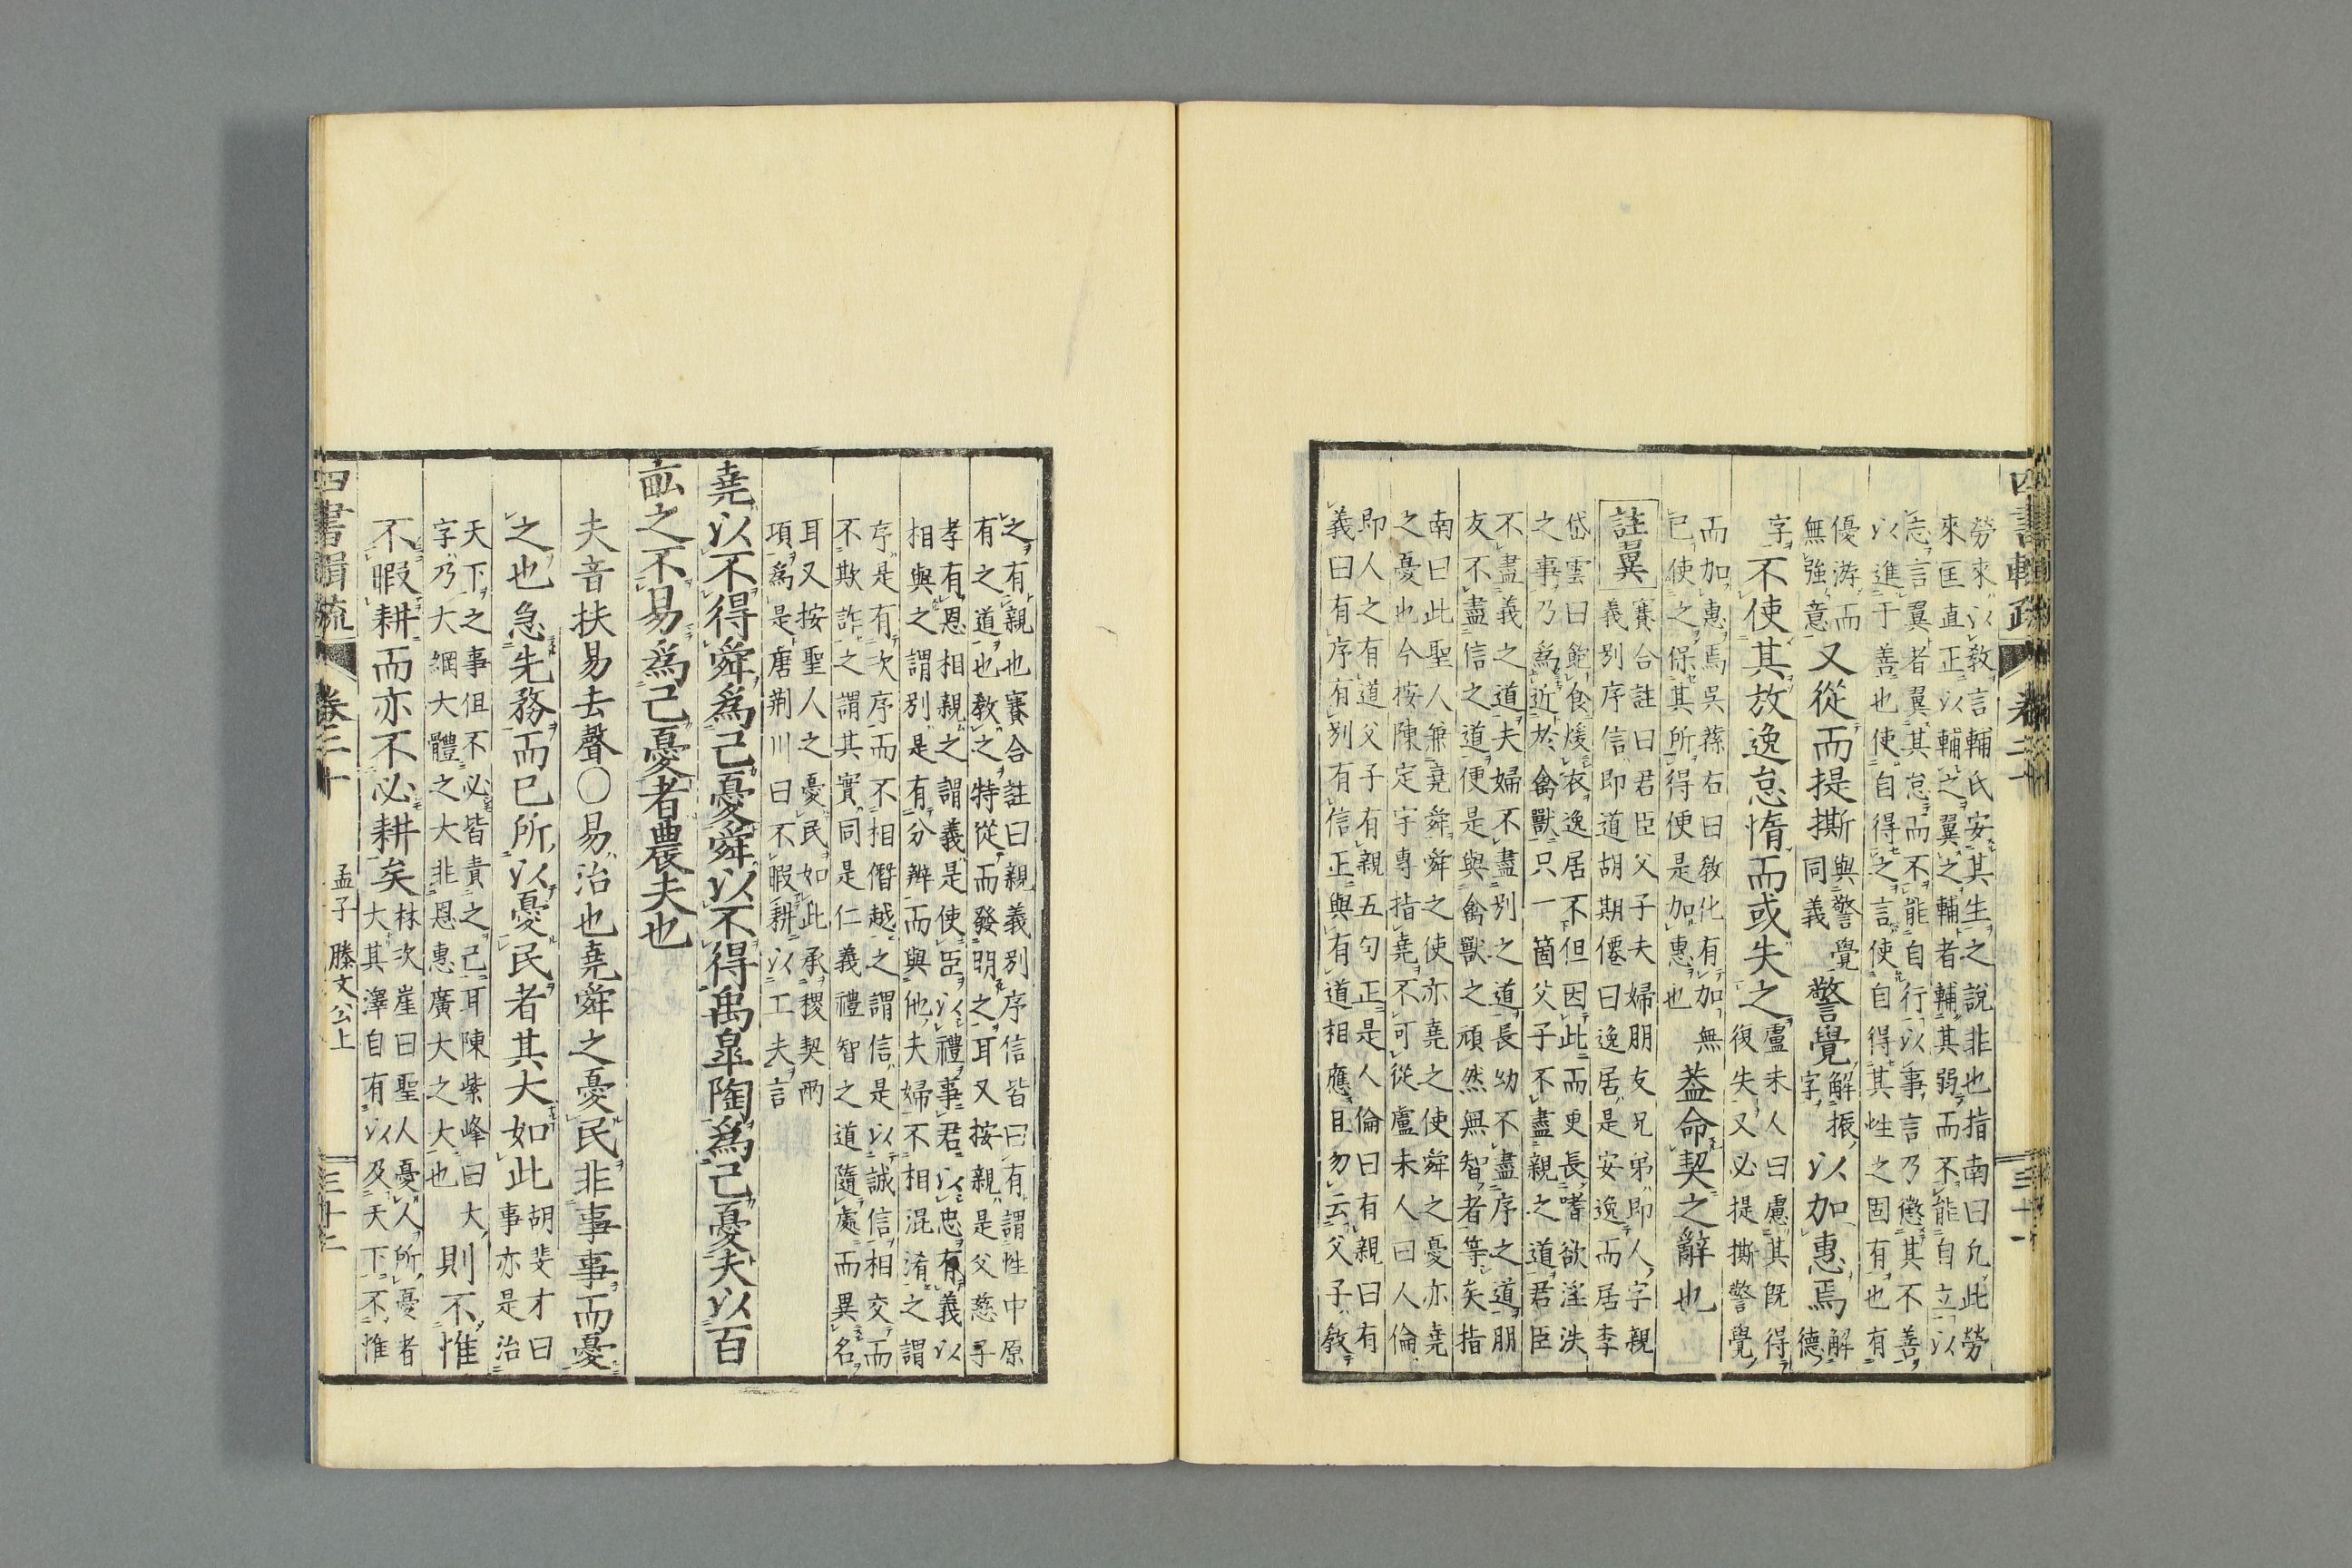 四書輯疏 卷二十 三十一
勞來以教言輔氏安其生之說非也指南曰允此勞
來匡直正以輔之翼之輔者輔其弱而不能自立以
志言翼者翼其怠而不能自行以事言乃懲其不善
以進于善也使自得之言使自得其性之固有也有
優游而
無強意
又從而提撕
與警覺
同義
警覺
解振
字
以加惠焉
解
德
字
不使其放逸怠惰而或失之
盧未人曰慮其既得
復失又必提撕警覺
而加惠焉吳蓀右曰教化有加無
已使之保其所得便是加惠也
蓋命契之辭也
註翼
賽合註曰君臣父子夫婦朋友兄弟即人字親
義別序信即道胡期僊曰逸居是安逸而居李
岱雲曰飽食煖衣逸居不但因此而更長嗜欲淫泆
之事乃為近於禽獸只一箇父子不盡親之道君臣
不盡義之道夫婦不盡別之道長幼不盡序之道朋
友不盡信之道便是與禽獸之頑然無智者等矣指
南曰此聖人兼堯舜舜之使亦堯之使舜之憂亦堯
之憂也今按陳定宇專指堯不可從盧未人曰人倫
即人之有道父子有親五句正是人倫曰有親曰有
義曰有序有別有信正與有道相應且勿云父子教
之有親也賽合註曰親義別序信皆曰有謂性中原
有之道也教之特從而發明之耳又按親是父慈子
孝有恩相親之謂義是使臣以禮事君以忠有義以
相與之謂別是有分辨而與他夫婦不相混淆之謂
序是有次序而不相僭越之謂信是以誠信相交而
不欺詐之謂其實同是仁義禮智之道隨處而異名
耳又按聖人之憂民如此承稷契兩
項為是唐荊川曰不暇耕以工夫言
堯以不得舜為己憂舜以不得禹皐陶為己憂夫以百
畝之不易為己憂者農夫也
夫音扶易去聲○易治也堯舜之憂民非事事而憂
之也急先務而已所以憂民者其大如此
胡斐才曰
事亦是治
天下之事但不必皆責之己耳陳紫峰曰大
字乃大綱大體之大非恩惠廣大之大也
則不惟
不暇耕而亦不必耕矣
林次崖曰聖人憂人所憂者
大其澤自有以及天下不惟
四書輯疏 卷二十 孟子 滕文公上 三十二